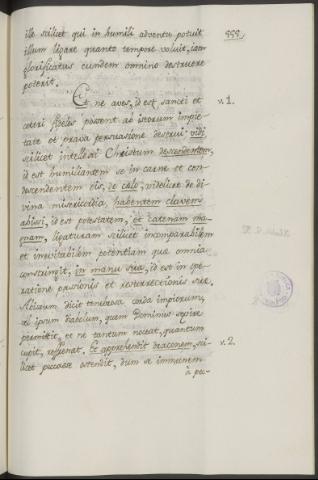 ille scilicet qui in humili adventu potuit
illum ligare quanto tempore voluit, iam
glorificatus eundem omnino destruere
poterit.
888.
Et ne aves, id est sancti et
v. 1.
ceteri fideles possent ab istorum impie-
tate et prava persuasione destrui vidi
scilicet intellexi Christum descendentem,
id est humiliantem se in carne et con-
descendentem eis, de celo, videlicet de di-
vina misericordia, habentem clavem
abissi, id est potestatem, et catenam ma-
gnam, ligaturam scilicet incomparabilem
et inevitabilem potentiam qua omnia
constringit, in manu sua, id est in ope-
ratione passionis et resurrectionis sue.
Abissum dicit tenebrosa corda impiorum,
vel ipsum diabolum, quem Dominus sevire
permittit, et ne tantum noceat, quantum
cupit, refrenat. Et apprehendit draconem, sci-
v. 2.
licet puccasse ostendit, dum se immunem
a pec-